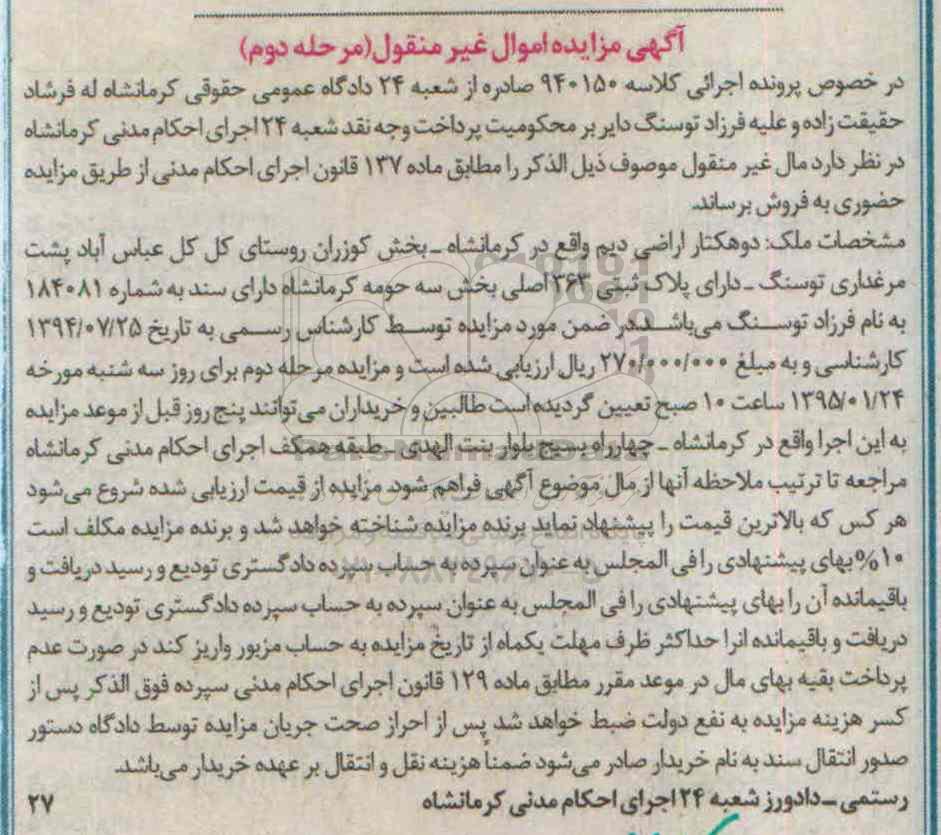 آگهی مزایده اموال غیر منقول(مرحله دوم)
در خصوص پرونده اجرائی کلاسه ۹۴۰۱۵۰ صادره از شعبه ۲۴ دادگاه عمومی حقوقی کرمانشاه له فرشاد
حقیقت زاده و علیه فرزاد توسنگ دایر بر محکومیت پرداخت وجه نقد شعبه ۲۴ اجرای احکام مدنی کرمانشاه
در نظر دارد مال غیر منقول موصوف ذیل الذکر را مطابق ماده ۱۳۷ قانون اجرای احکام مدنی از طریق مزایده
حضوری به فروش برساند.
مشخصات ملک: دوهکتار اراضی دیم واقع در کرمانشاه ـ بخش کوزران روستای کل کل عباس آباد پشت
مرغداری توسنگ ـ دارای پلاک ثبتی ۳۶۳ اصلی بخش سه حومه کرمانشاه دارای سند به شماره ۱۸۴۰۸۱
به نام فرزاد توسنگ می‌باشد.در ضمن مورد مزایده توسط کارشناس رسمی به تاریخ ۱۳۹۴/۰۷/۲۵
کارشناسی و به مبلغ ۲۷۰/۰۰۰/۰۰۰ ریال ارزیابی شده است و مزایده مرحله دوم برای روز سه شنبه مورخه
۱۳۹۵/۰۱/۲۴ ساعت ۱۰ صبح تعیین گردیده است طالبین و خریداران می‌توانند پنج روز قبل از موعد مزایده
به این اجرا واقع در کرمانشاه ـ چهارراه بسیج بلوار بنت الهدی ـ طبقه همکف اجرای احکام مدنی کرمانشاه
مراجعه تا ترتیب ملاحظه آنها از مال موضوع آگهی فراهم شود. مزایده از قیمت ارزیابی شده شروع می‌شود
هر کس که بالاترین قیمت را پیشنهاد نماید برنده مزایده شناخته خواهد شد و برنده مزایده مکلف است
۱۰%بهای پیشنهادی را فی المجلس به عنوان سپرده به حساب سپرده دادگستری تودیع و رسید دریافت و
باقیمانده آن را بهای پیشنهادی را فی المجلس به عنوان سپرده به حساب سپرده دادگستری تودیع و رسید
دریافت و باقیمانده انرا حداکثر ظرف مهلت یکماه از تاریخ مزایده به حساب مزبور واریز کند در صورت عدم
پرداخت بقیه بهای مال در موعد مقرر مطابق ماده ۱۲۹ قانون اجرای احکام مدنی سپرده فوق الذکر پس از
کسر هزینه مزایده به نفع دولت ضبط خواهد شد پس از احراز صحت جریان مزایده توسط دادگاه دستور
صدور انتقال سند به نام خریدار صادر می‌شود ضمناً هزینه نقل و انتقال بر عهده خریدار می‌باشد.
رستمی ـ دادورز شعبه ۲۴ اجرای احکام مدنی کرمانشاه
۲۷